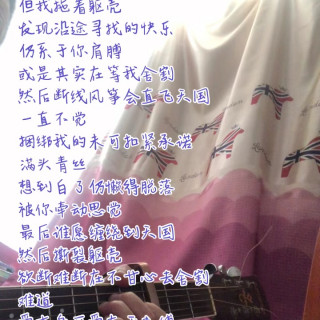 但我拖着躯壳
发现沿途寻找的快乐
仍系于你肩膊
或是其实在等我舍割
然后断线风筝会直飞天国
一直不觉
捆绑我的未可扣紧承诺
满头青丝
想到白了仍懒得脱落
被你牵动思觉
最后谁愿缠绕到天国
然后撕裂躯壳
欲断难断在不甘心去舍割
难道